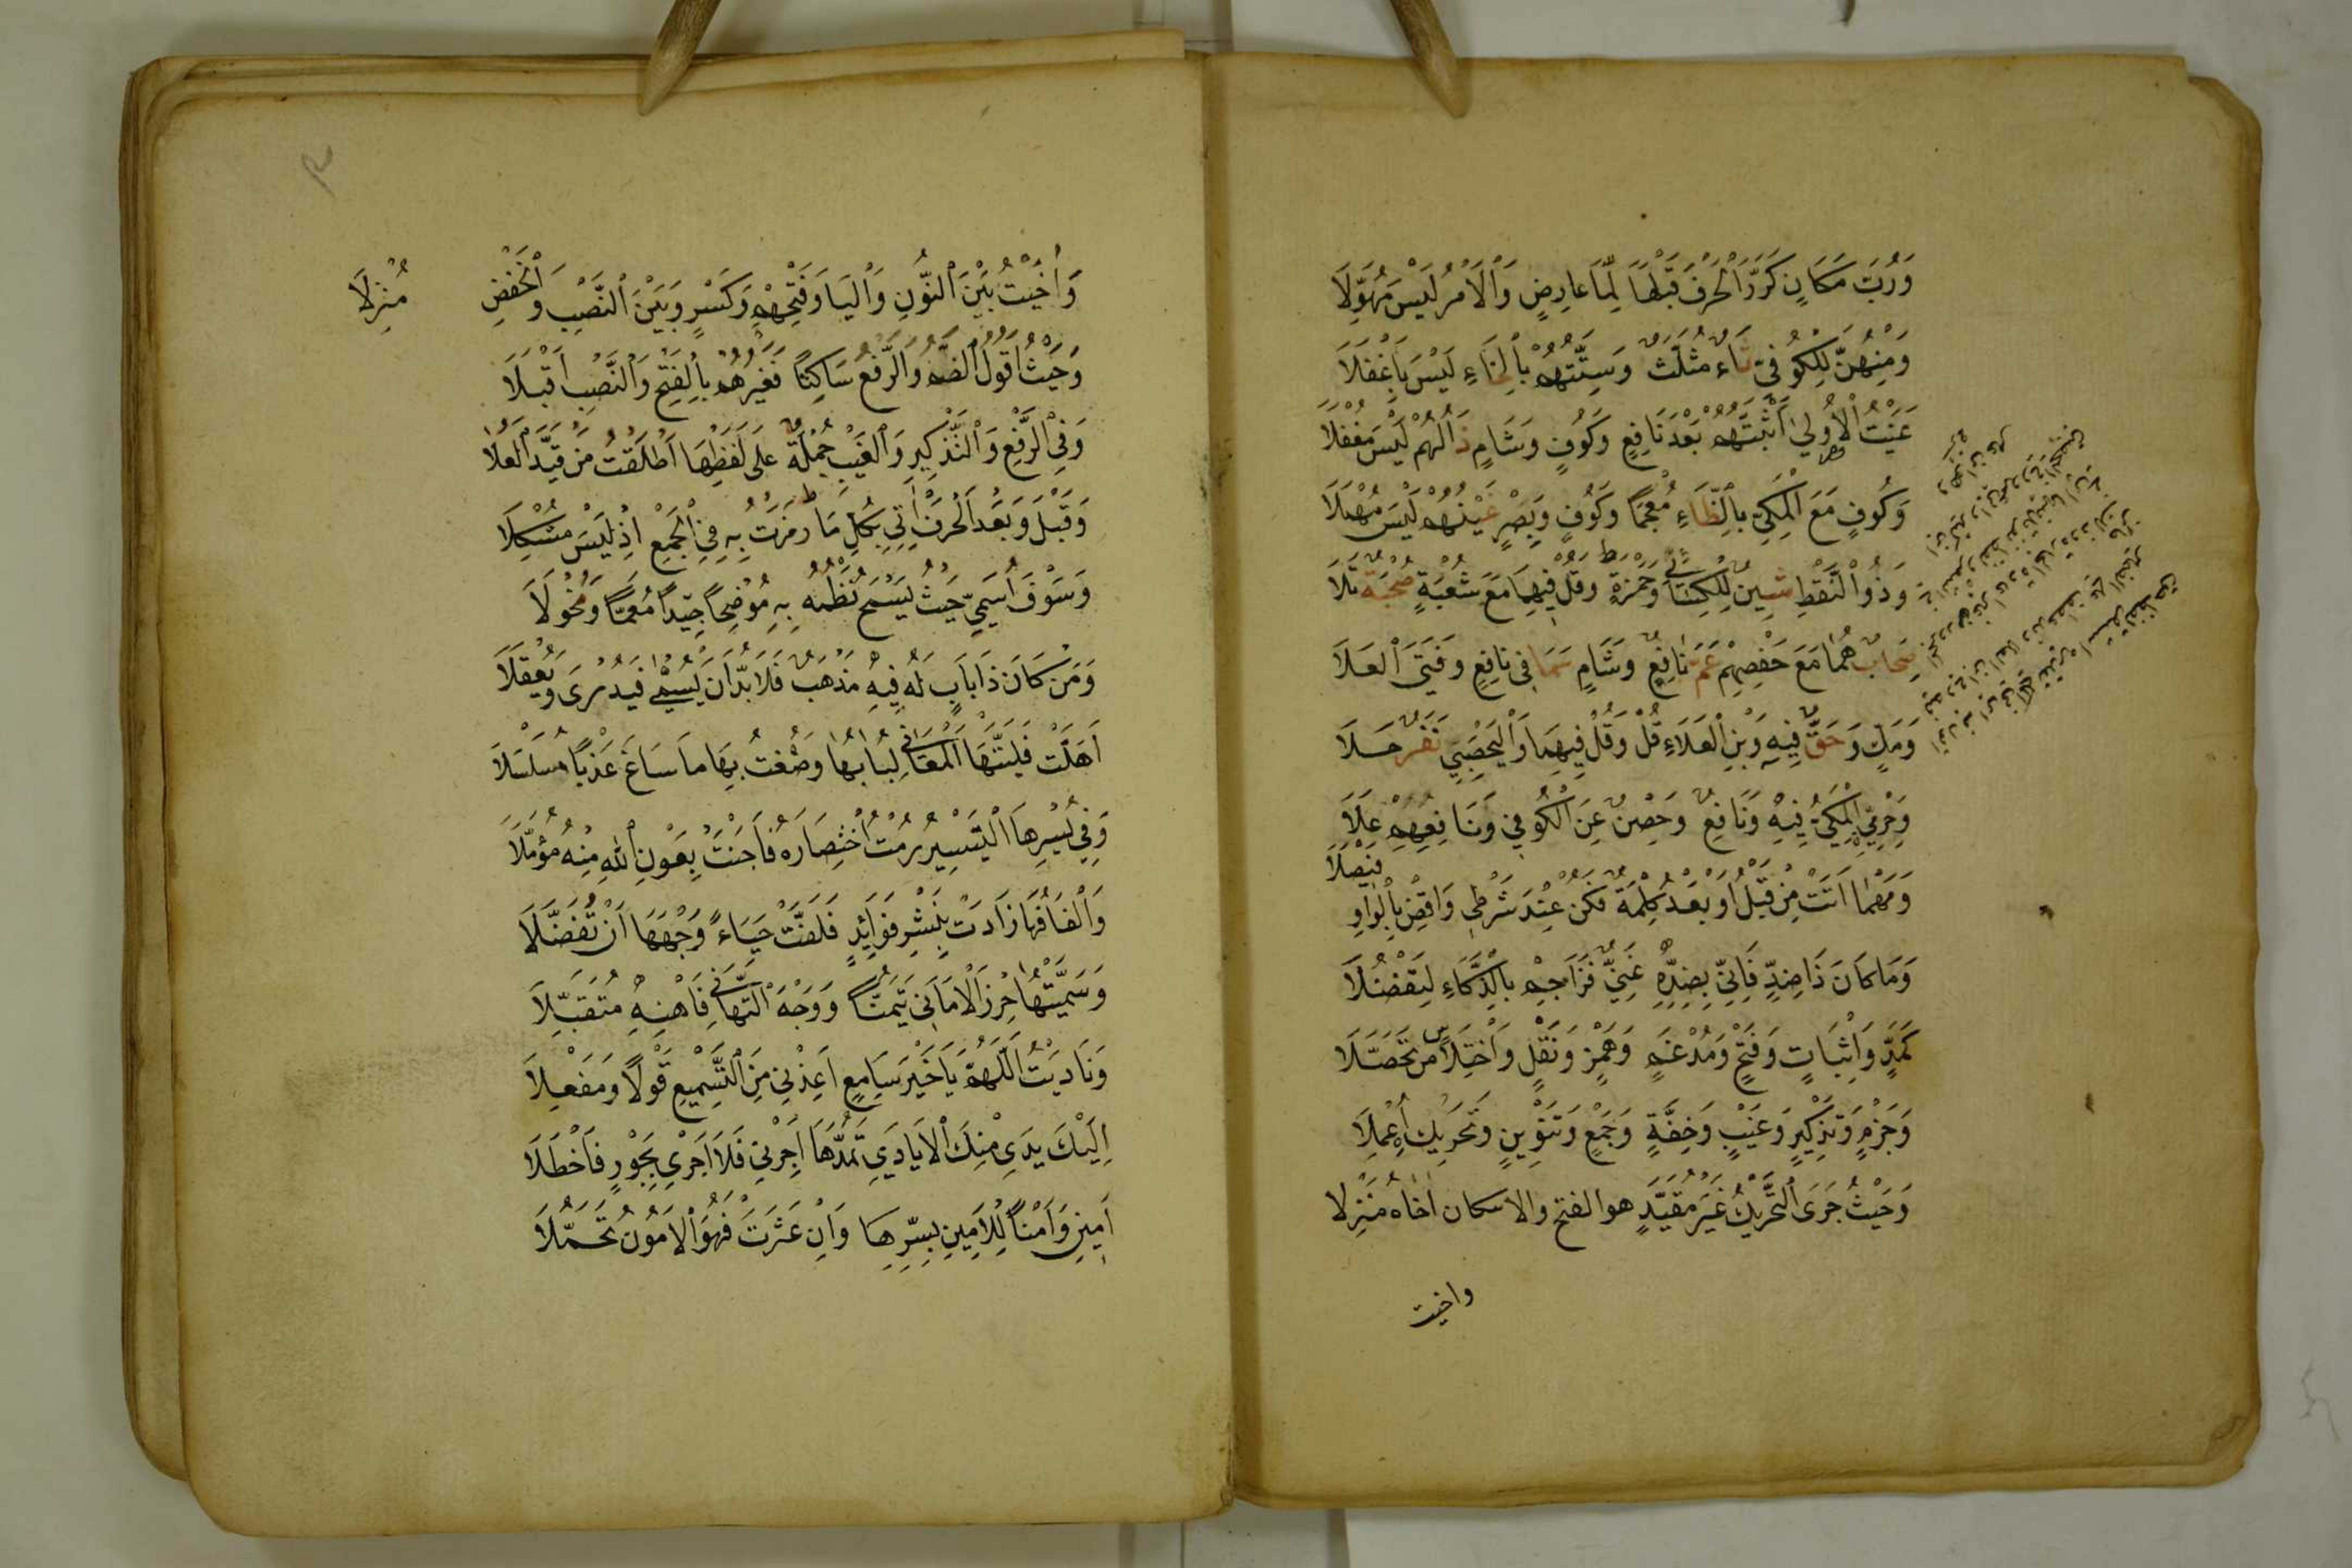 وَرُبَّ مَكَانٍ كَرَّرَ الْحَرْفَ قَبْلَهَا لِمَا عَارِضٍ وَالْأَمْرُ لَيْسَ مُهَوِّلَا
وَمِنْهُنَّ لِلْكُوفِيِّ ثَاءٌ مُثَلَّثٌ وَسِتَّتُهُمْ بِالْخَاءِ لَيْسَ بِأَغْفَلَا
عَنَيْتُ الْأُولَى أَثْبَتُّهُمْ بَعْدَ نَافِعٍ وَكُوفٍ وَشَامٍ ذَالُهُمْ لَيْسَ مُغْفَلَا
وَكُوفٍ مَعَ الْمَكِّيِّ بِالظَّاءِ مُعْجَمًا وَكُوفٍ وَبَصْرٍ غَيْنُهُمْ لَيْسَ مُهْمَلَا
وَذُو النَّقْطِ شِينٌ لِلْكِسَائِي وَحَمْزَةٍ وَقُلْ فِيهِمَا مَعَ شُعْبَةٍ صُحْبَةٌ تَلَا
صِحَابٌ هُمَا مَعَ حَفْصِهِمْ عَمَّ نَافِعٌ وَشَامٍ سَمَا فِي نَافِعٍ وَفَتَى الْعَلَا
وَمَكٍّ وَحَقٌّ فِيهِ وَبْنِ الْعَلَاءِ قُلْ وَقُلْ فِيهِمَا وَالْيَحْصَبِي نَفَرٌ حَلَا
وَحِرْمِيٌّ الْمَكِّيُّ فِيهِ وَنَافِعٌ وَحِصْنٌ عَنِ الْكُوفِي وَنَافِعِهِمْ عَلَا
وَمَهْمَا أَتَتْ مِنْ قَبْلُ أَوْ بَعْدُ كِلْمَةٌ فَكُنْ عِنْدَ شَرْطِي وَاقْضِ بِالْوَاوِ فَيْصَلَا
وَمَا كَانَ ذَا ضِدٍّ فَإِنِّي بِضِدِّهِ غَنِيٌّ فَزَاحِمْ بِالذَّكَاءِ لِتَفْضُلَا
كَمَدٍّ وَإِثْبَاتٍ وَفَتْحٍ وَمُدْغَمٍ وَهَمْزٍ وَنَقْلٍ وَاخْتِلَاسٍ تَحَصَّلَا
وَجَزْمٍ وَتَذْكِيرٍ وَغَيْبٍ وَخِفَّةٍ وَجَمْعٍ وَتَنْوِينٍ وَتَحْرِيكٍ أُعْمِلَا
وَحَيْثُ جَرَى التَّحْرِيكُ غَيْرَ مُقَيَّدٍ هو الفتح والاسكان اخاه مُنْزِلا
واخيت
وَآخَيْتُ بَيْنَ النُّونِ وَالْيَا وَفَتْحِهِمْ وَكَسْرٍ وَبَيْنَ النَّصْبِ وَالْخَفْضِ مُنْزِلَا
وَحَيْثُ أَقُولُ الضَّمُّ وَالرَّفْعُ سَاكِتًا فَغَيْرُهُمْ بِالْفَتْحِ وَالنَّصْبِ أَقْبَلَا
وَفِي الرَّفْعِ وَالتَّذْكِيرِ وَالْغَيْبِ جُمْلَةٌ عَلَى لَفْظِهَا أَطْلَقْتُ مَنْ قَيَّدَ الْعُلَا
وَقَبْلَ وَبَعْدَ الْحَرْفِ آتِي بِكُلِّ مَا رَمَزْتُ بِهِ فِي الْجَمْعِ إِذْ لَيْسَ مُشْكِلَا
وَسَوْفَ أُسَمِّي حَيْثُ يَسْمَحُ نَظْمُهُ بِهِ مُوضِحًا جِيدًا مُعَمًّا وَمُخْوَلَا
وَمَنْ كَانَ ذَا بَابٍ لَهُ فِيهِ مَذْهَبٌ فَلَا بُدَّ أَنْ يُسْمَى فَيُدْرَى وَيُعْقَلَا
أَهَلَّتْ فَلَبَّتْهَا الْمَعَانِي لُبَابُهَا وَصُغْتُ بِهَا مَا سَاغَ عَذْبًا مُسَلْسَلَا
وَفِي يُسْرِهَا التَّيْسِيرُ رُمْتُ اخْتِصَارَهُ فَأَجْنَتْ بِعَوْنِ اللَّهِ مِنْهُ مُؤَمَّلَا
وَأَلْفَافُهَا زَادَتْ بِنَشْرِ فَوَائِدٍ فَلَفَّتْ حَيَاءً وَجْهَهَا أَنْ تُفَضَّلَا
وَسَمَّيْتُهَا حِرْزَ الْأَمَانِي تَيَمُّنًا وَوَجْهَ التَّهَانِي فَاهْنِهِ مُتَقَبِّلَا
وَنَادَيْتُ اللَّهُمَّ يَا خَيْرَ سَامِعٍ أَعِذْنِي مِنَ التَّسْمِيعِ قَوْلًا وَمَفْعَلَا
إِلَيْكَ يَدِي مِنْكَ الْأَيَادِي تَمُدُّهَا أَجِرْنِي فَلَا أَجْرِي بِجَوْرٍ فَأَخْطَلَا
أَمِينَ وَأَمْنًا لِلْأَمِينِ بِسِرِّهَا وَإِنْ عَثَرَتْ فَهُوَ الْأَمُونُ تَحَمُّلَا